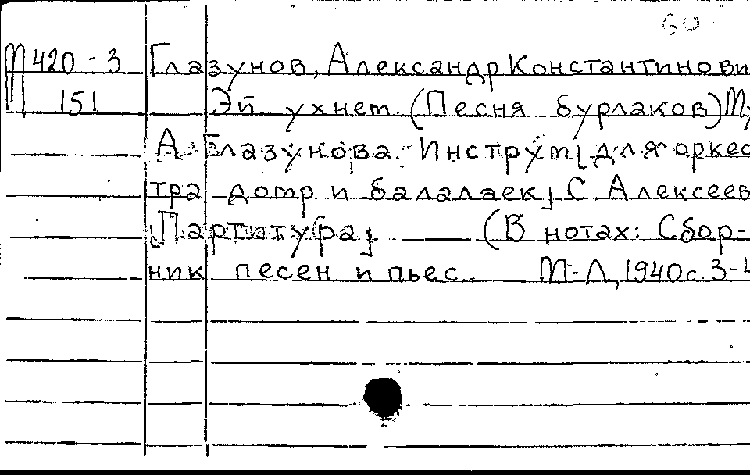 60
М 420-3 Глазунов, Александр Константинови
151 Эй ухнем (Песня бурлаков) Му
А. Глазунова. Инструм[для оркес
тра домр и балалаек] С. Алексеев
[Партитура] (В нотах: Сбор-
ник песен и пьес. М-Л, 1940 с. 3-4